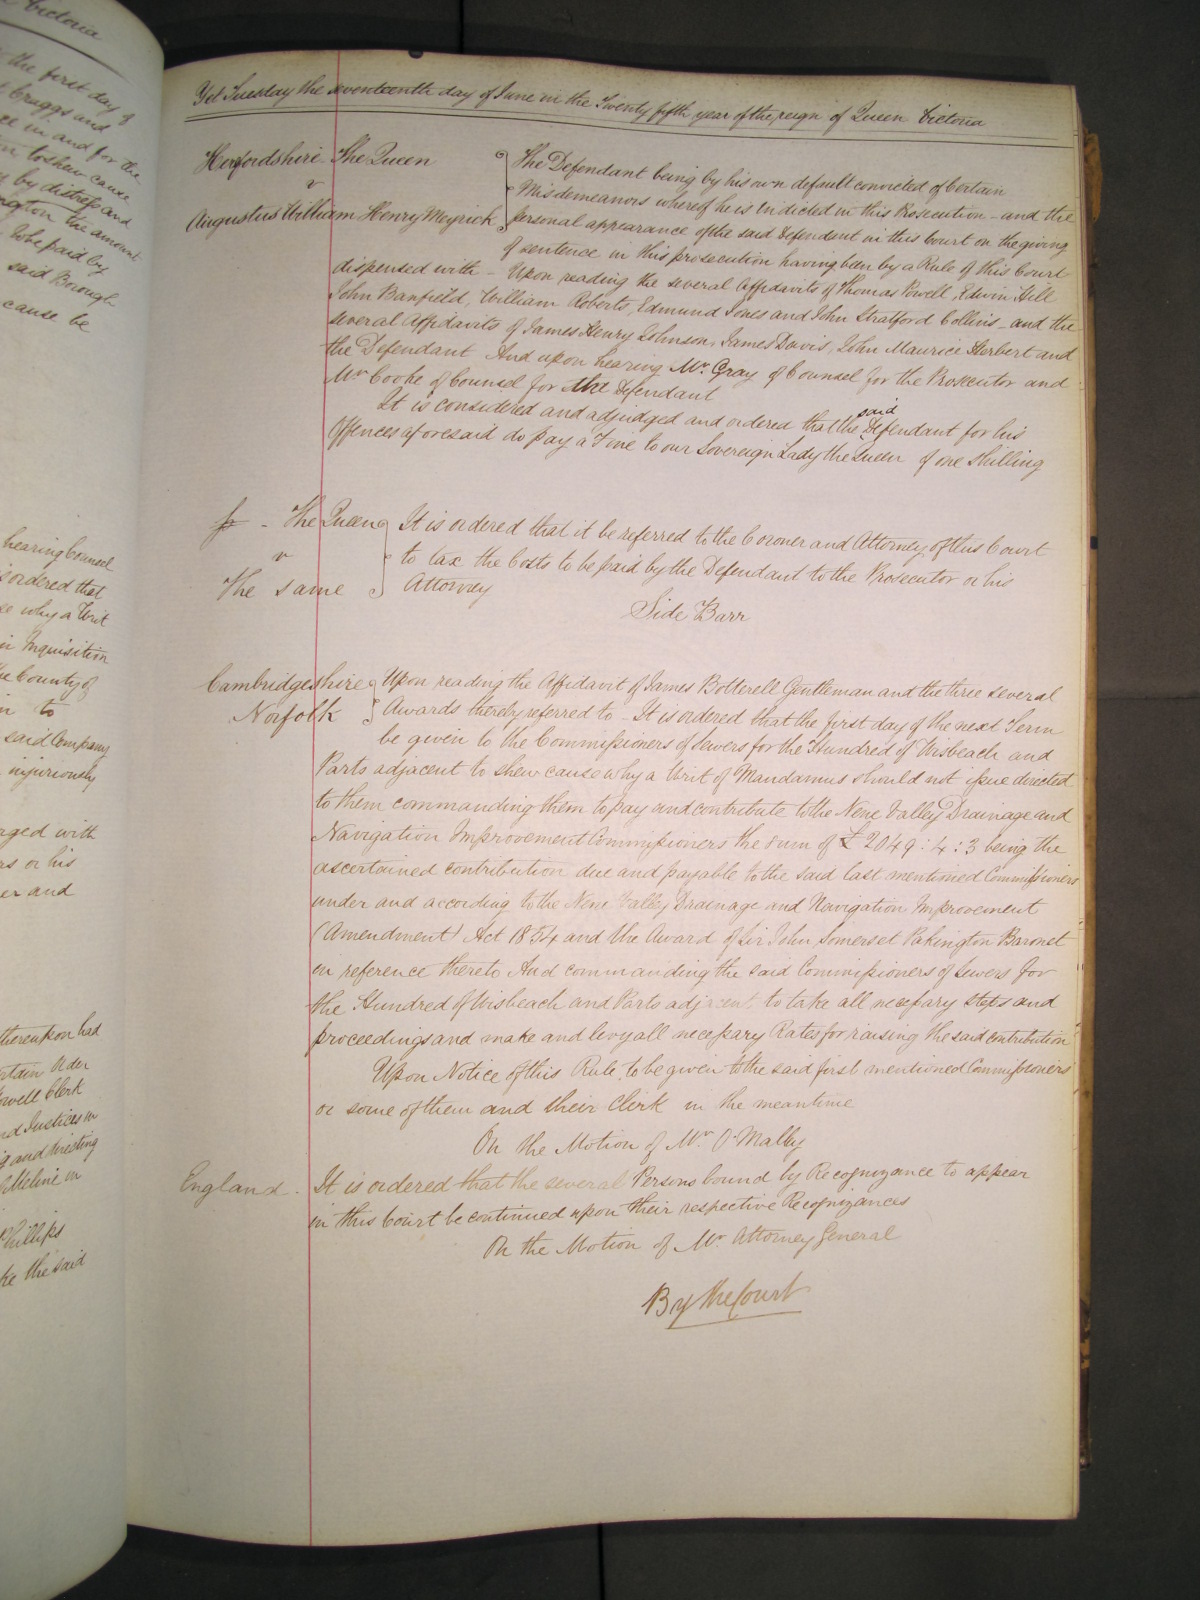 Victoria
the first day of
Craggs and
ce in and for the
toshew cause
by distress and
the amount
to be paid by
said Borough
cause be
hearing Counsel
is ordered that
se why a Writ
Inquisition
he County of
to
said Company
injuriously
aged with
as or his
er and
thereupon had
Order
Clerk
nd Justices in
and twisting
Meline in
Phillips
the said
Yet Tuesday the seventeenth day of June in the Twenty fifth year of the reign of Queen Victoria
Herfordshire The Queen
v
Augustus William Henry Meyrick
The Defendant being by his own default convicted of Certain
Misdemeanors whereof he is Indicted in this Prosecution - and the
personal appearance of the said Defendant in this Court on the giving
of sentence in this prosecution having been by a Rule of this Court
dispensed with - Upon reading the several Affidavits of Thomas Powell, Edwin Hill
John Banfield, William Roberts, Edmund Jones and John Stratford Collins - and the
several Affidavits of James Henry Johnson, James Davis, John Maurice Herbert and
the Defendant And upon hearing Mr. Gray of Counsel for the Prosecutor and
Mr Cooke of Counsel for the Defendant
It is considered and adjudged and ordered that the said Defendant for his
Offences aforesaid do pay a Fine to our Sovereign Lady the Queen of one shilling
The Queen
v
The same
It is ordered that it be referred to the Coroner and Attorney of this Court
to tax the Costs to be paid by the Defendant to the Prosecutor or his
Attorney
Side Barr
Cambridgeshire
Norfolk
Upon reading the Affidavit of James Botterell Gentleman and the three several
Awards thereby referred to - It is ordered that the first day of the next Term
be given to the Commissioners of Sewers for the Hundred of Wisbeach and
Parts adjacent to shew cause why a Writ of Mandamus should not issue directed
to them commanding them to pay and contribute to the Nene Valley Drainage and
Navigation Improvement Commissioners the sum of £2049:4:3 being the
ascertained contribution due and payable to the said last mentioned Commissioners
under and according to the Nene Valley Drainage and Navigation Improvement
(Amendment) Act 1854 and the Award of Sir John Somerset Pakington Baronet
in reference thereto And commanding the said Commissioners of Sewers for
the Hundred of Wisbeach and Parts adjacent to take all necessary steps and
proceedings and make and levy all necessary Rates for raising the said contribution
Upon Notice of this Rule to be given to the said first mentioned Commissioners
or some of them and their Clerk in the meantime
On the Motion of Mr O'Malley
England. It is ordered that the several Persons bound by Recognizance to appear
in this Court be continued upon their respective Recognizances
On the Motion of Mr Attorney General
By the Court